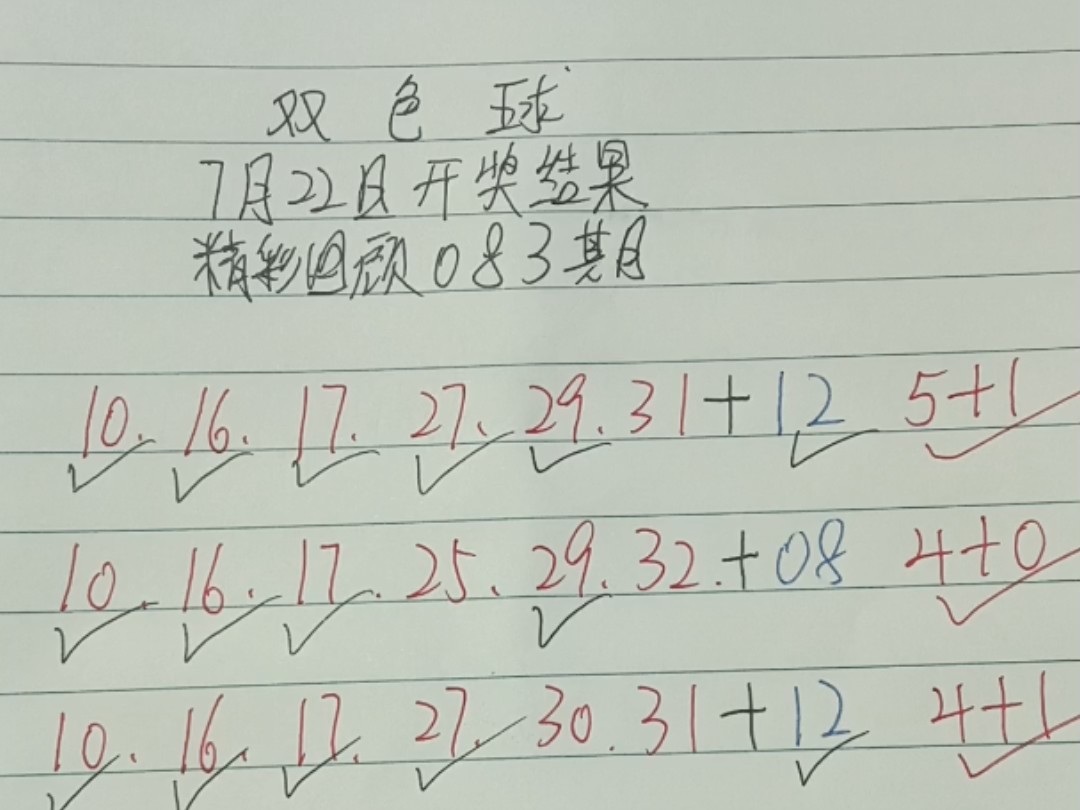 双色球
7月22日开奖结果
精彩回顾083期
10.16.17.27.29.31+12 5+1
10.16.17.25.29.32.+08 4+0
10.16.17.27.30.31+12 4+1